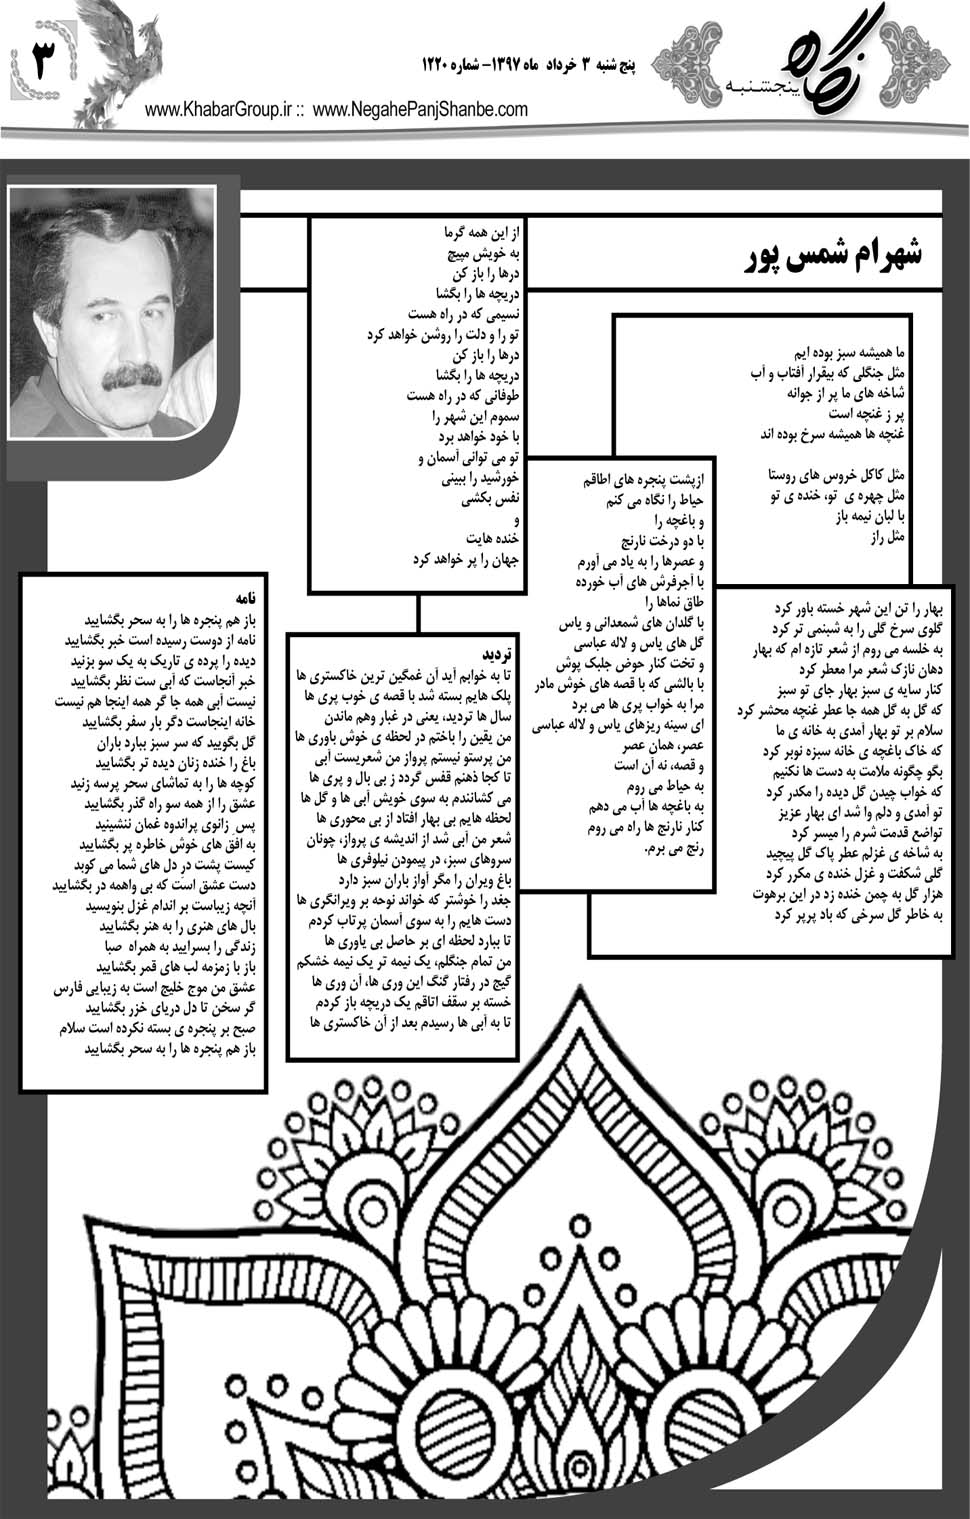 ۳
پنج شنبه ۳ خرداد ماه ۱۳۹۷- شماره ۱۲۲۰
نگاه
پنجشنبه
www.KhabarGroup.ir :: www.NegahePanjShanbe.com
شهرام شمس پور
ما همیشه سبز بوده ایم
مثل جنگلی که بیقرار آفتاب و آب
شاخه های ما پر از جوانه
پر ز غنچه است
غنچه ها همیشه سرخ بوده اند
مثل کاکل خروس های روستا
مثل چهره ی تو، خنده ی تو
با لبان نیمه باز
مثل راز
از این همه گرما
به خویش مپیچ
درها را باز کن
دریچه ها را بگشا
نسیمی که در راه هست
تو را و دلت را روشن خواهد کرد
درها را باز کن
دریچه ها را بگشا
طوفانی که در راه هست
سموم این شهر را
با خود خواهد برد
تو می توانی آسمان و
خورشید را ببینی
نفس بکشی
و
خنده هایت
جهان را پر خواهد کرد
ازپشت پنجره های اطاقم
حیاط را نگاه می کنم
و باغچه را
با دو درخت نارنج
و عصرها را به یاد می آورم
با آجرفرش های آب خورده
طاق نماها را
با گلدان های شمعدانی و یاس
گل های یاس و لاله عباسی
و تخت کنار حوض جلبک پوش
با بالشی که با قصه های خوش مادر
مرا به خواب پری ها می برد
ای سینه ریزهای یاس و لاله عباسی
عصر، همان عصر
و قصه، نه آن است
به حیاط می روم
به باغچه ها آب می دهم
کنار نارنج ها راه می روم
رنج می برم.
بهار را تن این شهر خسته باور کرد
گلوی سرخ گلی را به شبنمی تر کرد
به خلسه می روم از شعر تازه ام که بهار
دهان نازک شعر مرا معطر کرد
کنار سایه ی سبز بهار جای تو سبز
که گل به گل همه جا عطر غنچه محشر کرد
سلام بر تو بهار آمدی به خانه ی ما
که خاک باغچه ی خانه سبزه نوبر کرد
بگو چگونه ملامت به دست ها نکنیم
که خواب چیدن گل دیده را مکدر کرد
تو آمدی و دلم وا شد ای بهار عزیز
تواضع قدمت شرم را میسر کرد
به شاخه ی غزلم عطر پاک گل پیچید
گلی شکفت و غزل خنده ی مکرر کرد
هزار گل به چمن خنده زد در این برهوت
به خاطر گل سرخی که باد پرپر کرد
تردید
تا به خوابم آید آن غمگین ترین خاکستری ها
پلک هایم بسته شد با قصه ی خوب پری ها
سال ها تردید، یعنی در غبار وهم ماندن
من یقین را باختم در لحظه ی خوش باوری ها
من پرستو نیستم پرواز من شعریست آبی
تا کجا ذهنم قفس گردد ز بی بال و پری ها
می کشانندم به سوی خویش آبی ها و گل ها
لحظه هایم بی بهار افتاد از بی محوری ها
شعر من آبی شد از اندیشه ی پرواز، چونان
سروهای سبز، در پیمودن نیلوفری ها
باغ ویران را مگر آواز باران سبز دارد
جغد را خوشتر که خواند نوحه بر ویرانگری ها
دست هایم را به سوی آسمان پرتاب کردم
تا ببارد لحظه ای بر حاصل بی یاوری ها
من تمام جنگلم، یک نیمه تر یک نیمه خشکم
گیج در رفتار گنگ این وری ها، آن وری ها
خسته بر سقف اتاقم یک دریچه باز کردم
تا به آبی ها رسیدم بعد از آن خاکستری ها
نامه
باز هم پنجره ها را به سحر بگشایید
نامه از دوست رسیده است خبر بگشایید
دیده را پرده ی تاریک به یک سو بزنید
خبر آنجاست که آبی ست نظر بگشایید
نیست آبی همه جا گر همه اینجا هم نیست
خانه اینجاست دگر بار سفر بگشایید
گل بگویید که سر سبز ببارد باران
باغ را خنده زنان دیده تر بگشایید
کوچه ها را به تماشای سحر پرسه زنید
عشق را از همه سو راه گذر بگشایید
پس زانوی پراندوه غمان ننشینید
به افق های خوش خاطره پر بگشایید
کیست پشت در دل های شما می کوبد
دست عشق است که بی واهمه در بگشایید
آنچه زیباست بر اندام غزل بنویسید
بال های هنری را به هنر بگشایید
زندگی را بسرایید به همراه صبا
باز با زمزمه لب های قمر بگشایید
عشق من موج خلیج است به زیبایی فارس
گر سخن تا دل دریای خزر بگشایید
صبح بر پنجره ی بسته نکرده است سلام
باز هم پنجره ها را به سحر بگشایید